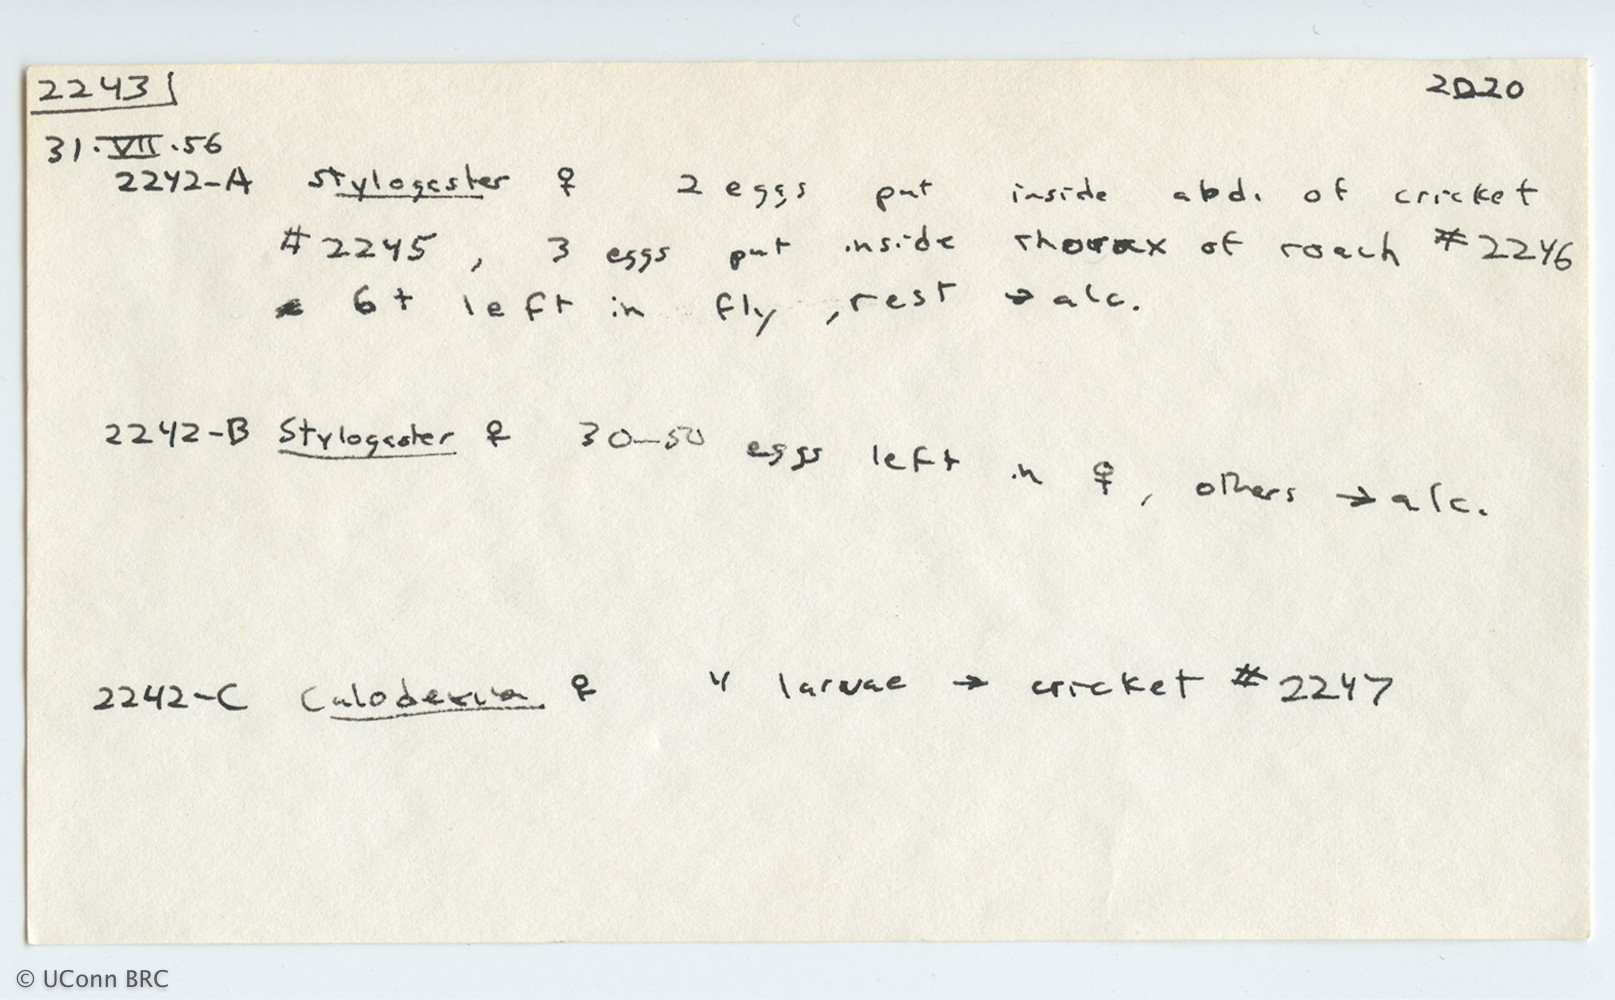 2243 2D20
31.VII.56
2242-A Stylogaster ♀ 2 eggs put inside abd. of cricket
#2245, 3 eggs put inside thorax of roach #2246
6+ left in fly, rest → alc.
2242-B Stylogaster ♀ 30-50 eggs left in ♀, others → alc.
2242-C Calodexia ♀ 4 larvae → cricket #2247
© UConn BRC